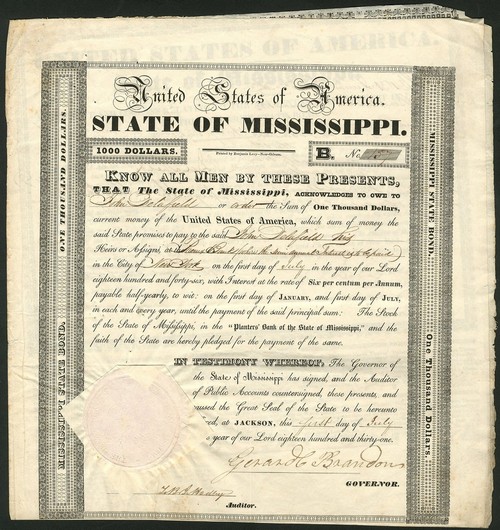 United States of America.
STATE OF MISSISSIPPI.
1000 DOLLARS.
Printed by Benjamin Levy—New-Orleans.
B. No.
KNOW ALL MEN BY THESE PRESENTS,
THAT The State of Mississippi, ACKNOWLEDGES TO OWE TO
John Delafield or order the Sum of One Thousand Dollars,
current money of the United States of America, which sum of money the
said State promises to pay to the said John Delafield his
Heirs or Assigns, at the
in the City of New York on the first day of July in the year of our Lord
eighteen hundred and forty-six, with Interest at the rate of Six per centum per Annum,
payable half-yearly, to wit: on the first day of JANUARY, and first day of JULY,
in each and every year, until the payment of the said principal sum: The Stock
of the State of Mississippi, in the "Planters' Bank of the State of Mississippi," and the
faith of the State are hereby pledged for the payment of the same.
IN TESTIMONY WHEREOF, The Governor of
the State of Mississippi has signed, and the Auditor
of Public Accounts countersigned, these presents, and
caused the Great Seal of the State to be hereunto
, at JACKSON, this first day of July
year of our Lord eighteen hundred and thirty-one.
Gerard C Brandon
GOVERNOR.
Auditor.
ONE THOUSAND DOLLARS.
MISSISSIPPI STATE BOND.
MISSISSIPPI STATE BOND.
One Thousand Dollars.